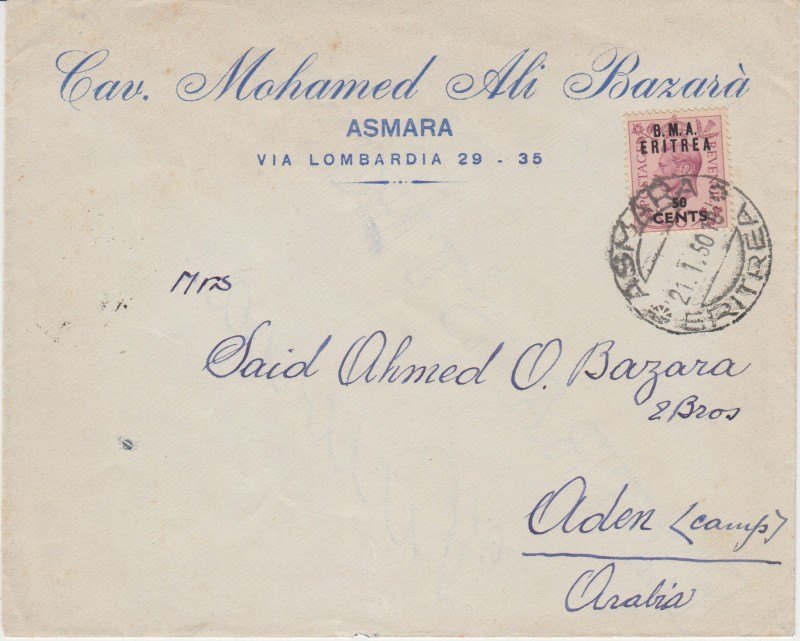 Cav. Mohamed Ali Bazarà
ASMARA
VIA LOMBARDIA 29 - 35
B.M.A.
ERITREA
POSTAGE
REVENUE
50
CENTS.
ASMARA
21.1.50
ERITREA
Mrs
Said Ahmed O. Bazara
& Bros
Aden (camp)
Arabia